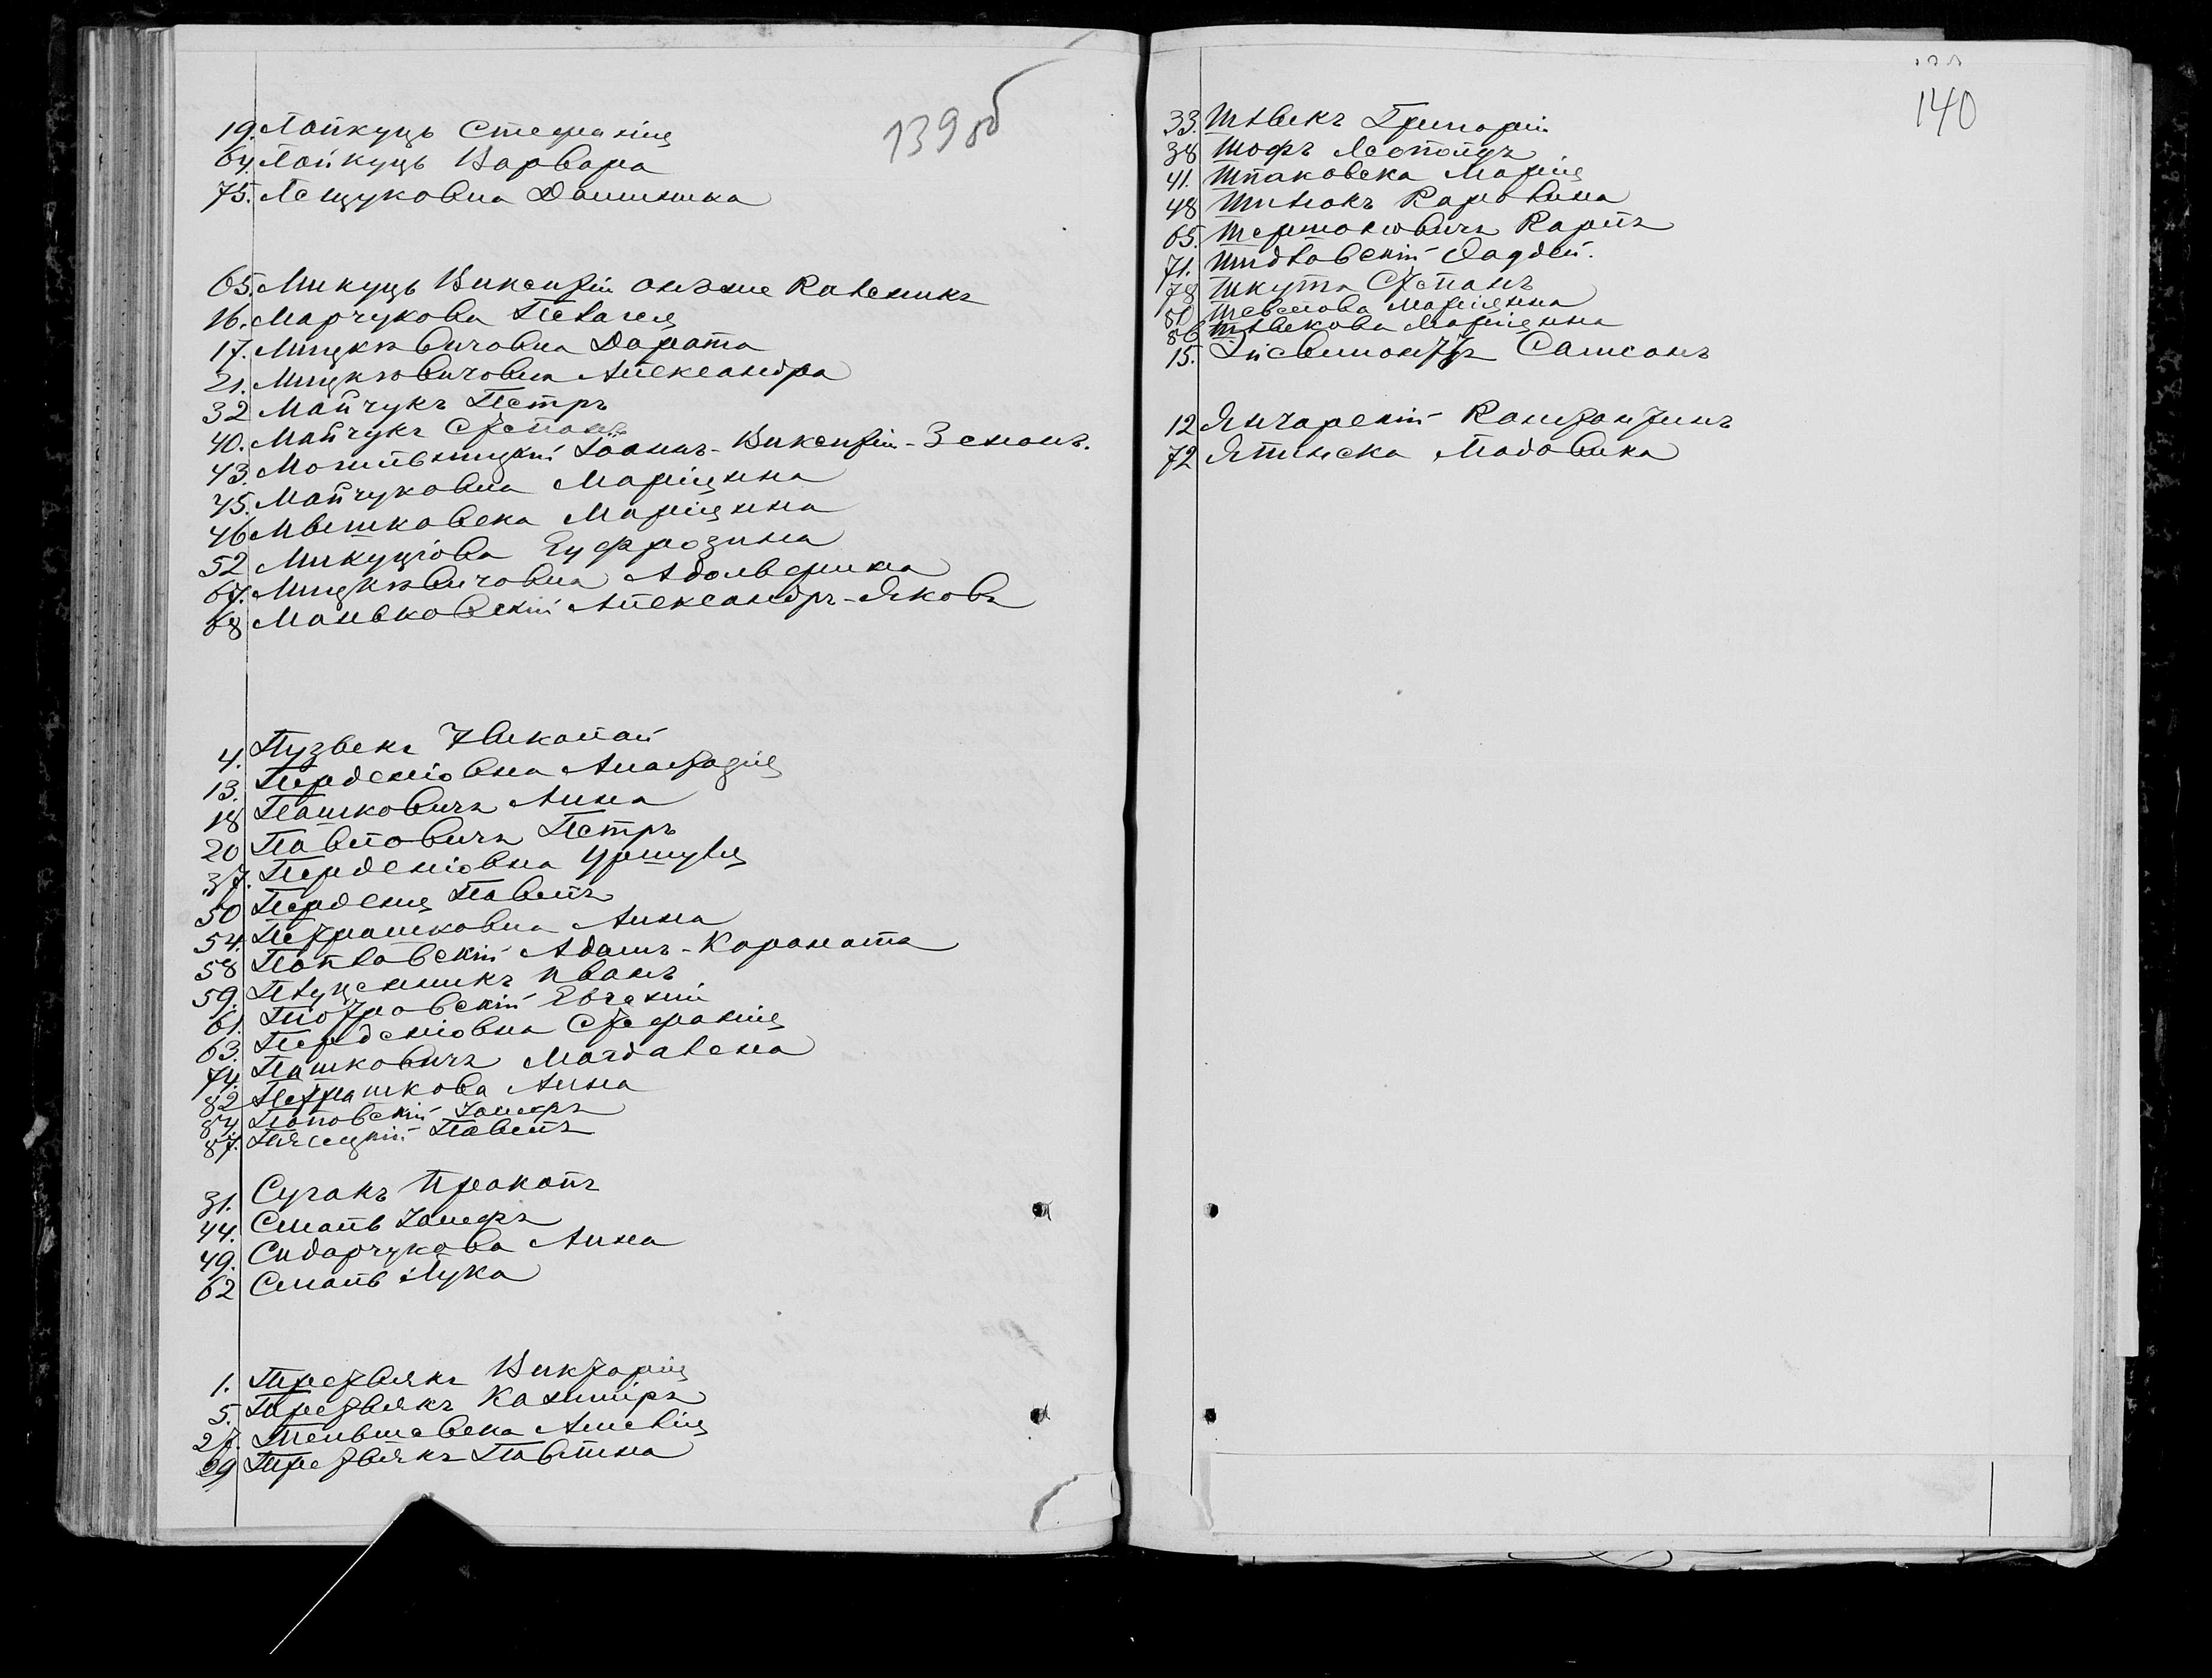 139 об
19. Лапкуць Стефанія
64. Лапкуць Варвара
75. Лещуковна Доминика
65. Микуць Викентій онъ же Каленикъ
16. Марчукова Пелагея
17. Мицкѣвичовна Дарота
21. Мицкѣвичовна Александра
32 Майчукъ Петръ
40. Майчукъ Степанъ
43. Могильницкій Іоаннъ-Викентій-Зенонъ.
45. Майчуковна Маріянна
46 Мышковска Маріянна
52 Микуціова Еуфрозина
67. Мицкѣвичовна Адольфина
68 Маньковскій Александръ-Яковъ
4. Пузевкъ Николай
13. Перденіовна Анастазія
18 Пашковичъ Анна
20 Павловичъ Петръ
37. Перденіовна Уршуля
50 Перденя Павелъ
54. Петрашковна Анна
58 Павловскій Адамъ-Кароната
59. Плуценникъ Иванъ
61. Піотровскій Евгеній
63. Перденіовна Стефанія
74. Пашковичъ Магдалена
82 Петрашкова Анна
84. Поповскій Іозефъ
87. Пясецкій Павелъ
31. Сугакъ Прокопъ
44. Смаль Іозефъ
49. Сидорчукова Анна
62 Смаль Лука
1. Третьякъ Викторія
5. Третьякъ Казиміръ
27. Тельшевска Амелія
29 Третьякъ Павлина
140
33. Шлыкъ Григорій
38 Шофъ Леопольдъ
41. Шпаковска Марія
48 Шилюкъ Каролина
65. Шермоковичъ Карлъ
71. Шидловскій Фаддей.
78 Шкута Степанъ
80 Шевелова Маріянна
86 Шлыкова Маріянна
15. Эйсымонттъ Самсонъ
12 Янчарскій Константинъ
72 Ялинска Людовика